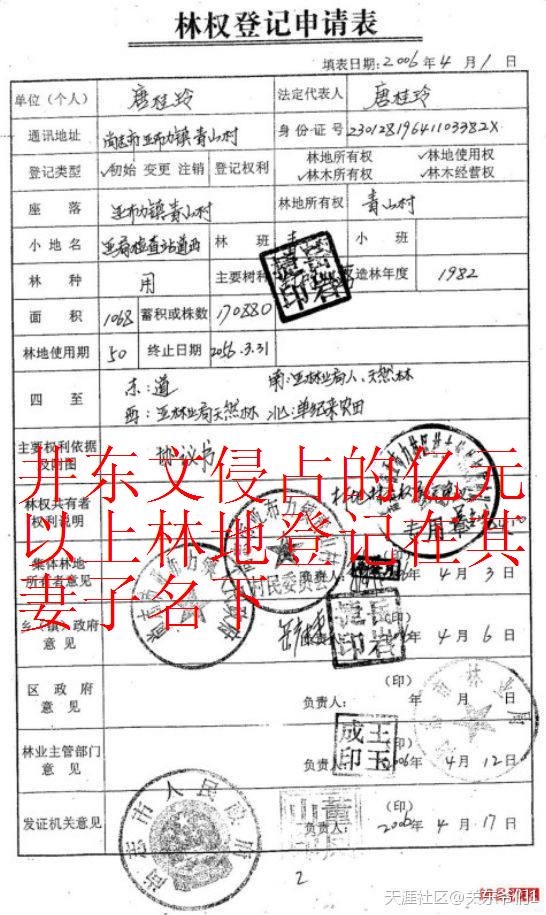 林权登记申请表
填表日期:2006年4月1日
单位(个人) 唐桂玲 法定代表人 唐桂玲
通讯地址 尚志市亚布力镇青山村 身份证号 23012819641103382X
登记类型 ✓初始 变更 注销 登记权利 林地所有权 ✓林地使用权 ✓林木所有权 ✓林木经营权
座落 亚布力镇青山村 林地所有权 青山村
小地名 林班 小班
林种 用 主要树种 造林年度 1982
面积 1068 蓄积或株数 170880
林地使用期 50 终止日期 2056.3.31
四至 东:道 南:亚林业局人、天然林
西:亚林业局天然林 北:单纪来农田
主要权利依据及附图 协议书
林权共有者权利说明
井东文侵占的亿元
以上林地登记在其
妻子名下
集体林地所有者意见 村民委员会 负责人: 4月3日
乡(镇)政府意见 (印) 4月6日
区政府意见 负责人: (印) 年 月 日
林业主管部门意见 负责人: 王玉成印 (印) 2006 4月12日
发证机关意见 尚志市人民政府 负责人: (印) 2006年4月17日
2
天涯社区@关东爷们1